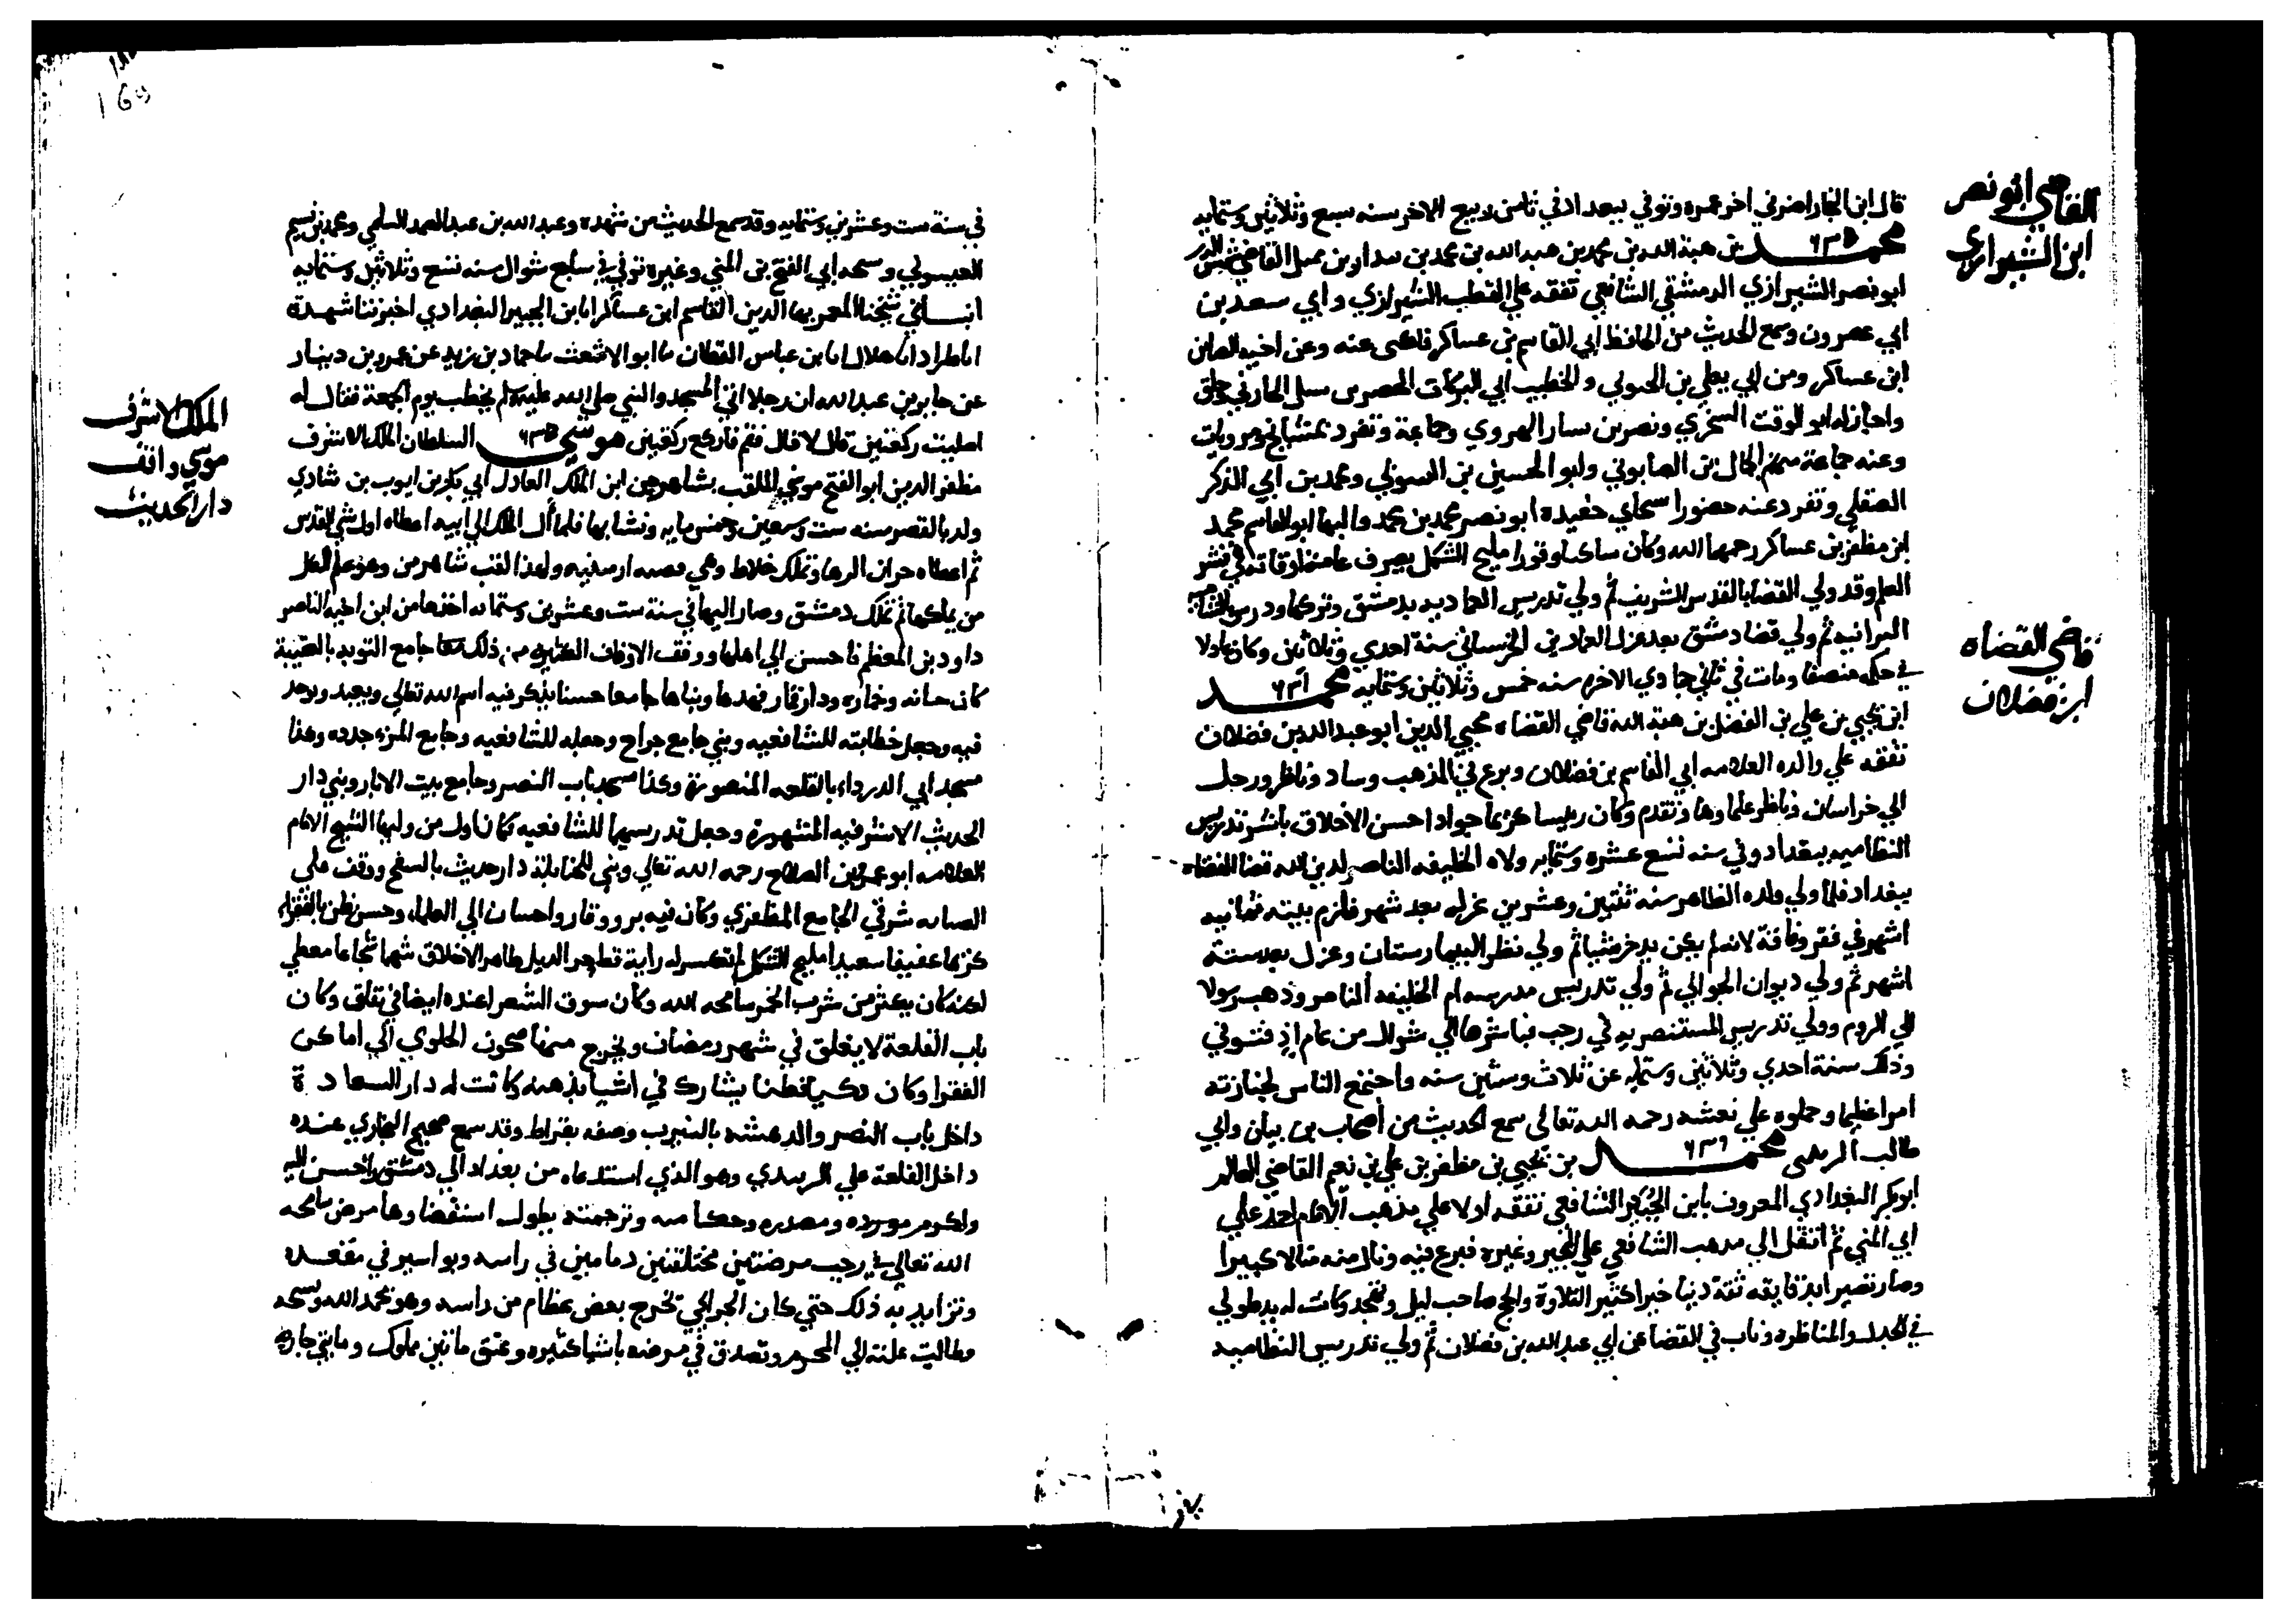 القاضي ابو نصر
ابن الشيرازي
قال ابن النجار اضر في اخر عمره وتوفي ببغداد في ثامن ربيع الاخر سنه سبع وثلاثين وستمايه
محمد ٦٣٥ بن هبة الله بن محمد بن هبد الله بن محمد بن القاضي شمس الدين
ابو نصر الشيرازي الدمشقي الشافعي تفقه علي القطب الشيرازي وابي سعد بن
ابي عصرون وسمع الحديث من الحافظ ابي القاسم بن عساكر فاكثر عنه وعن اخيه الصاين
ابن عساكر ومن ابي يعلي بن الحبوبي والخطيب ابي البركات الحارثي وخلق
واجاز له ابو الوقت السجزي ونصر بن سيار الهروي وجماعة وتفرد بمشايخ ومرويات
وعنه جماعة منهم الجمال بن الصابوني وابو الحسين بن اليونيني ومحمد بن ابي الذكر
الصقلي وتفرد عنه حضورا حفيده ابو نصر محمد بن محمد والبها ابو القاسم محمد
ابن مظفر بن عساكر رحمها الله وكان ساكنا وقورا مليح الشكل يصرف عامة اوقاته في نشر
العلم وقد ولي القضا بالقدس الشريف ثم ولي تدريس العماديه بدمشق وتركها ودرس بالشاميه
البرانيه ثم ولي قضا دمشق بعد عزل العماد بن الحرستاني سنة احدي وثلاثين وكان عادلا
في حكمه منصفا ومات في ثاني جمادي الاخره سنه خمس وثلاثين وستمايه محمد ٦٣١
قاضي القضاه
ابن فضلان
ابن يحيي بن علي بن الفضل بن هبة الله قاضي القضاه محيي الدين ابو عبد الله بن فضلان
تفقه علي والده العلامه ابي القاسم بن فضلان وبرع في المذهب وساد وناظر ورحل
الي خراسان وناظر علماوها وتقدم وكان رييسا كريما جوادا حسن الاخلاق باشر تدريس
النظاميه ببغداد وفي سنه تسع عشره وستمايه ولاه الخليفه الناصر لدين الله قضا القضاه
ببغداد فلما ولي ولده الظاهر سنه ثنتين وعشرين عزله بعد شهر فلزم بيته ثمانيه
اشهر في فقر وفاقة لانه لم يكن يدخر شيا ثم ولي نظر البيمارستان وعزل بعد ستة
اشهر ثم ولي ديوان الجوالي ثم ولي تدريس مدرسه ام الخليفه الناصر وذهب رسولا
الي الروم وولي تدريس المستنصريه في رجب فباشرها الي شوال من عام اذ فتوفي
وذلك سنة احدي وثلاثين وستمايه عن ثلاث وستين سنه واجتمع الناس لجنازته
امرا عظيما وحملوه علي نعشه رحمه الله تعالي سمع الحديث من اصحاب بن بيان وابي
طالب محمد ٦٣٩ بن يحيي بن مظفر بن علي بن نعيم القاضي العالم
ابو بكر البغدادي المعروف بابن الحُبَيْر الشافعي تفقه اولا علي مذهب الامام احمد علي
ابي المني ثم انتقل الي مذهب الشافعي علي المجير وغيره فبرع فيه ونال منه منالا كبيرا
وصار بصيرا بدقايقه ثقة دينا خيرا كثير التلاوة والحج صاحب ليل وتهجد وكانت له يد طولي
في الجدل والمناظره وناب في القضا عن ابي عبد الله بن فضلان ثم ولي تدريس النظاميه
في سنة ست وعشرين وستمايه وقد سمع الحديث من شهده وعبد الله بن عبد الصمد السلمي ومحمد بن نسيم
العيسوني وشيخه ابي الفتح بن المني وغيره توفي في سابع شوال سنه تسع وثلاثين وستمايه
انباني شيخنا المعمر بها الدين القاسم ابن عساكر انا بن الحبير البغدادي اخبرتنا شهدة
انا طراد انا هلال انا بن عباس القطان ثنا ابو الاشعث ثنا حماد بن زيد عن عمرو بن دينار
عن جابر بن عبد الله ان رجلا اتي المسجد والنبي صلي الله عليه وسلم يخطب يوم الجمعة فقال له
اصليت ركعتين قال لا قال فقم فاركع ركعتين موسي ٦٣٥ السلطان الملك الاشرف
الملك الاشرف
موسي واقف
دار الحديث
مظفر الدين ابو الفتح موسي الملقب بشاه ارمن ابن الملك العادل ابي بكر بن ايوب بن شادي
ولد بالقصر سنه ست وسبعين وخمس مايه ونشا بها فلما آل الملك الي ابيه اعطاه اول شي القدس
ثم اعطاه حران الرها وتملك خلاط وهي قصبه ارمينيه ولهذا لقب شاه ارمن وهو علم لكل
من يملكها ثم تملك دمشق وصار اليها في سنة ست وعشرين وستمايه اخذها من ابن اخيه الناصر
داود بن المعظم فاحسن الي اهلها ووقف الاوقاف الكثيره من ذلك جامع التوبه بالعقيبة
كان حانه وخماره ودار قمار فهدمها وبناها جامعا حسنا يذكر فيه اسم الله تعالي ويعبد ويوحد
فيه وجعل خطابته للشافعيه وبني جامع جراح وجعله للشافعيه وجامع المزه جدده وهذا
مسجد ابي الدرداء بالقلعه المنصورة وكذا مسجد باب النصر وجامع بيت الابار وبني دار
الحديث الاشرفيه المشهورة وجعل تدريسها للشافعيه كان اول من وليها الشيخ الامام
العلامه ابو عمرو بن الصلاح رحمه الله تعالي وبني للحنابلة دار حديث بالسفح ووقف علي
شرقي الجامع المظفري وكان فيه بر ووقار واحسان الي العلماء وحسن ظن بالفقراء
كريما عفيفا سعيدا مليح الشكل لم تكسر له راية قط جر الذيل طاهر الاخلاق شهما شجاعا معطي
لكنه كان يكثر من شرب الخمر سامحه الله وكان سوق الشعر اعنده ايضا في نفاق وكان
باب القلعة لا يغلق في شهر رمضان ويخرج منها صحون الحلوي الي اماكن
الفقرا وكان ذكيا فطنا يشارك في اشيا بذهنه وكانت له دار السعادة
داخل باب النصر والدهشه بالنيرب وصفه بقراط وقد سمع صحيح البخاري عنده
داخل القلعة علي الزبيدي وهو الذي استدعاه من بغداد الي دمشق واحسن اليه
واكرم مورده ومصدره ومحاسنه وترجمته يطول استقصاوها مرض سامحه
الله تعالي في رجب مرضتين مختلفتين دمامين في راسه وبواسير في مقعده
وتزايد به ذلك حتي كان الجرايحي يخرج بعض عظام من راسه وهو يحمد الله ويسبحه
وطالت علته الي المحرم وتصدق في مرضه باشيا كثيره وعتق ماتين مملوك ومايتي جاريه